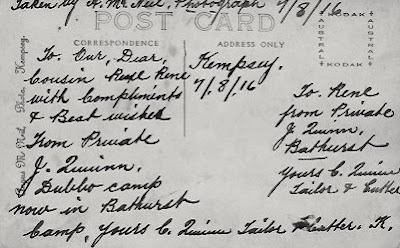 Taken by A. McNeil, Photograph 7/8/16
POST CARD
CORRESPONDENCE
ADDRESS ONLY
KODAK
AUSTRAL
AUSTRAL
KODAK
Angus McNeil, Photo. Kempsey.
To, Our, Dear,
Cousin Rene
with Compliments
& Best wishes
From Private
J. Quinn.
Dubbo camp
now in Bathurst
Camp, yours C. Quinn Tailor & Cutter. K.
Kempsey.
7/8/16
To. Rene
from Private
J Quinn,
Bathurst
yours C. Quinn
Tailor & Cutter